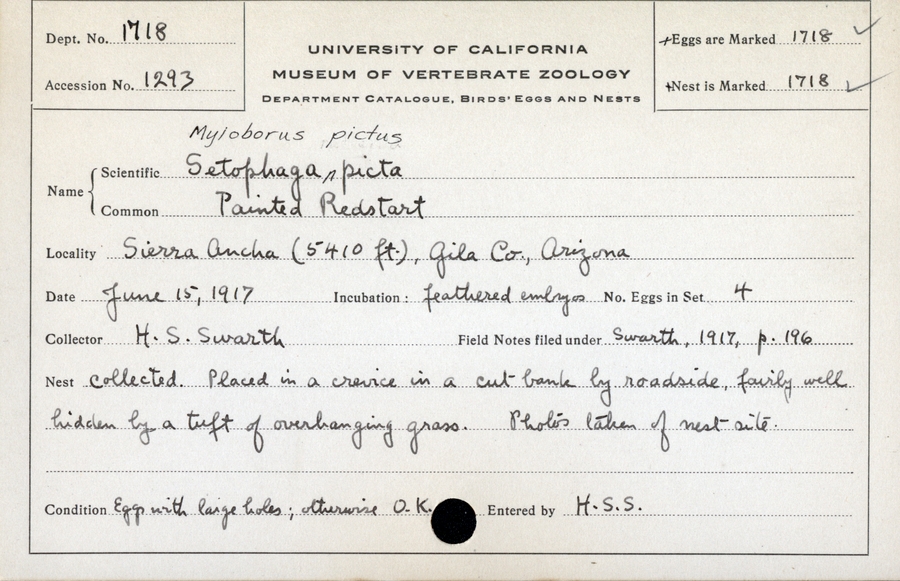 Dept. No. 1718
UNIVERSITY OF CALIFORNIA
MUSEUM OF VERTEBRATE ZOOLOGY
DEPARTMENT CATALOGUE, BIRDS' EGGS AND NESTS
+Eggs are Marked 1718 ✓
Accession No. 1293
+Nest is Marked 1718 ✓
Myioborus pictus
Name { Scientific Setophaga picta
Common Painted Redstart
Locality Sierra Ancha (5410 ft.), Gila Co., Arizona
Date June 15, 1917 Incubation: feathered embryos No. Eggs in Set 4
Collector H. S. Swarth Field Notes filed under Swarth, 1917, p. 196
Nest collected. Placed in a crevice in a cut bank by roadside, fairly well
hidden by a tuft of overhanging grass. Photos taken of nest site.
Condition Eggs with large holes; otherwise O.K. Entered by H.S.S.